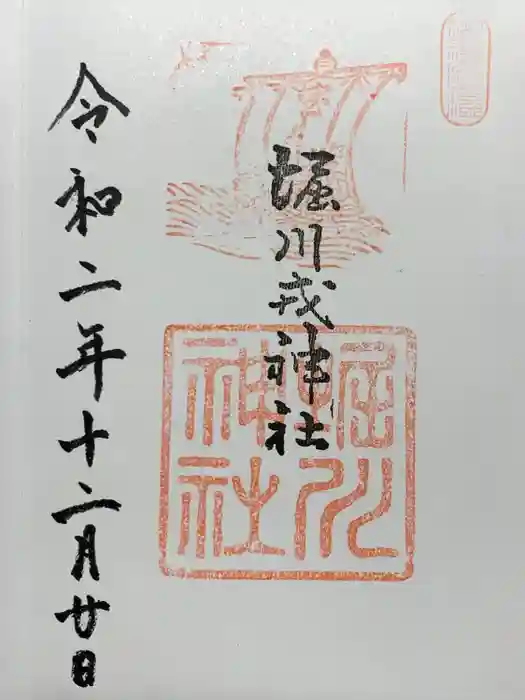 堀川戎神社
堀川
神社
令和二年十二月廿日